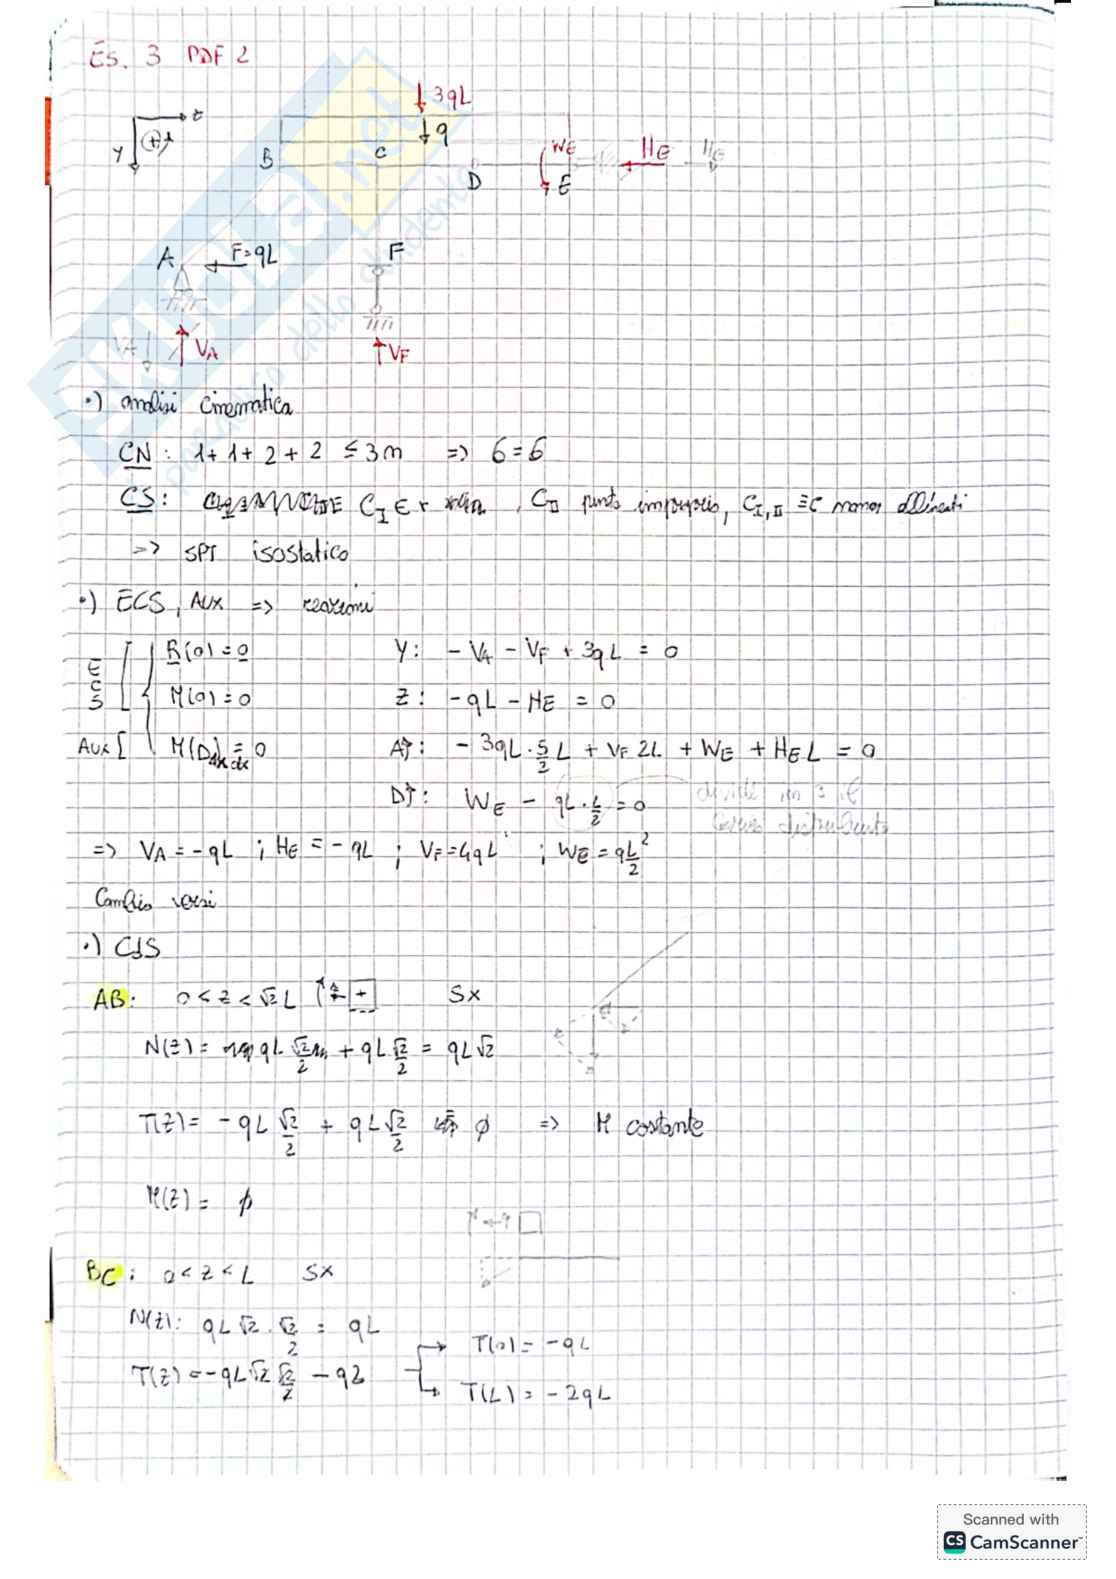 Es. 3 PDF 2
3qL
z
q
y
B
C
WE
HE
HE
D
E
A
F=qL
F
VA
VA
VF
•) analisi cinematica
CN: 1+1+2+2 ≤ 3m => 6=6
CS: CI ∈ r , CII punto improprio, CI,II ≡C non allineati
=> SPT isostatico
•) ECS, AUX => reazioni
ECS
R(o)=0 Y: -VA - VF + 3qL = 0
M(o)=0 Z: -qL - HE = 0
AUX M(D)dx=0 A: - 3qL·5/2 L + VF 2L + WE + HE L = 0
D: WE - qL·L/2 = 0
dividi in 2 il
carico distribuito
=> VA = -qL ; HE = -qL ; VF=4qL ; WE = qL²/2
Cambio versi
•) CdS
AB: 0<z<√2 L + Sx
N(z) = qL √2/2 + qL √2/2 = qL√2
T(z)= -qL √2/2 + qL √2/2 = ϕ => M costante
M(z) = ϕ
BC: 0<z<L Sx
N(z): qL√2·√2/2 = qL
T(z) = -qL√2 √2/2 - qz
T(0) = -qL
T(L) = -2qL
Scanned with
CS CamScanner